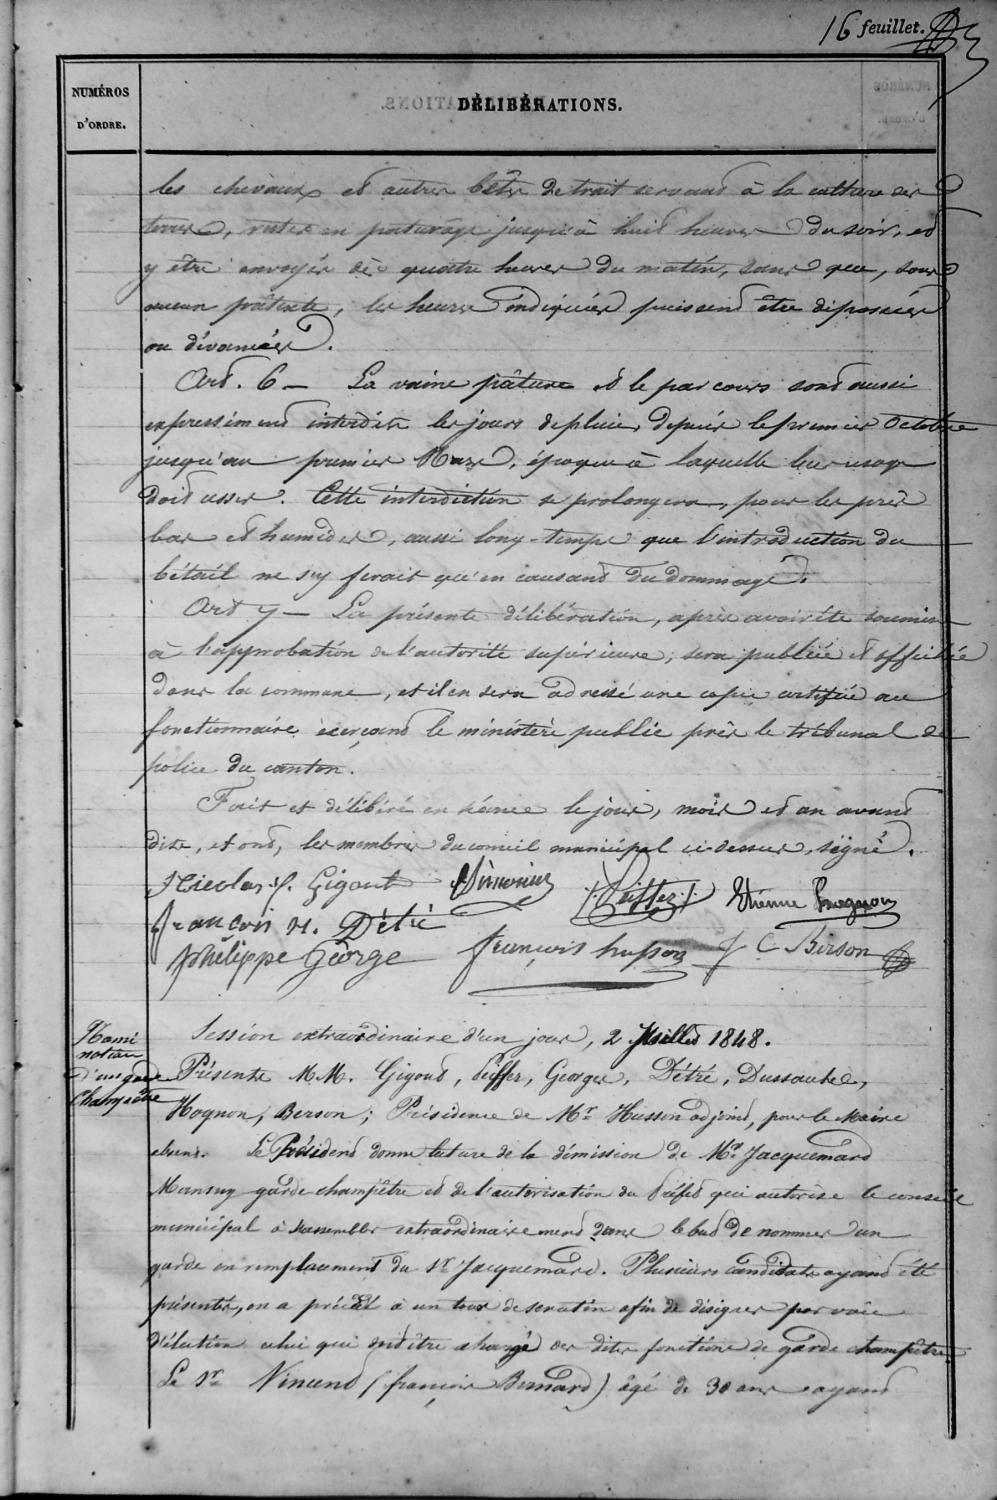 16 feuillet.
NUMÉROS
D'ORDRE.
DÉLIBÉRATIONS.
les chevaux et autres bêtes de trait servant à la culture des
terres, rester en pâturage jusqu'à huit heures du soir, et
y être envoyés dès quatre heures du matin, sans que, sous
aucun prétexte, les heures indiquées puissent être dépassées
ou dévancées.
Art. 6 — La vaine pâture et le parcours sont aussi
expressément interdits les jours de pluie, depuis le premier Octobre
jusqu'au premier Mars, époque à laquelle leur usage
doit cesser. Cette interdiction se prolongera, pour les prés
bas et humides, aussi long-temps que l'introduction du
bétail ne s'y ferait qu'en causant du dommage.
Art 7 — La présente délibération, après avoir été soumise
à l'approbation de l'autorité supérieure, sera publiée et affichée
dans la commune, et il en sera adressé une copie certifiée au
fonctionnaire exerçant le ministère public près le tribunal de
police du canton.
Fait et délibéré en séance le jour, mois et an avant
dits, et ont, les membres du conseil municipal ci-dessus, signé.
Nicolas J. Gigout Peiffer Etienne Hognon
François N. Détré
Philippe George François husson J C Berson
Nomi
nation
d'un garde
Champêtre
Session extraordinaire d'un jour, 2 Juillet 1848.
Présents M.M. Gigout, Peiffer, George, Détré, Dussautel,
Hognon, Berson; Présidence de Mr Husson adjoint, pour le Maire
absent. Le Président donne lecture de la démission de Mr Jacquemard
Mansuy garde champêtre et de l'autorisation du Préfet qui autorise le conseil
municipal à s'assembler extraordinairement dans le but de nommer un
garde en remplacement du Sr Jacquemard. Plusieurs candidats ayant été
présentés, on a procédé à un tour de scrutin afin de désigner par voie
d'élection celui qui doit être chargé des dites fonctions de garde champêtre
Le Sr Vincent (françois Bernard) âgé de 30 ans ayant